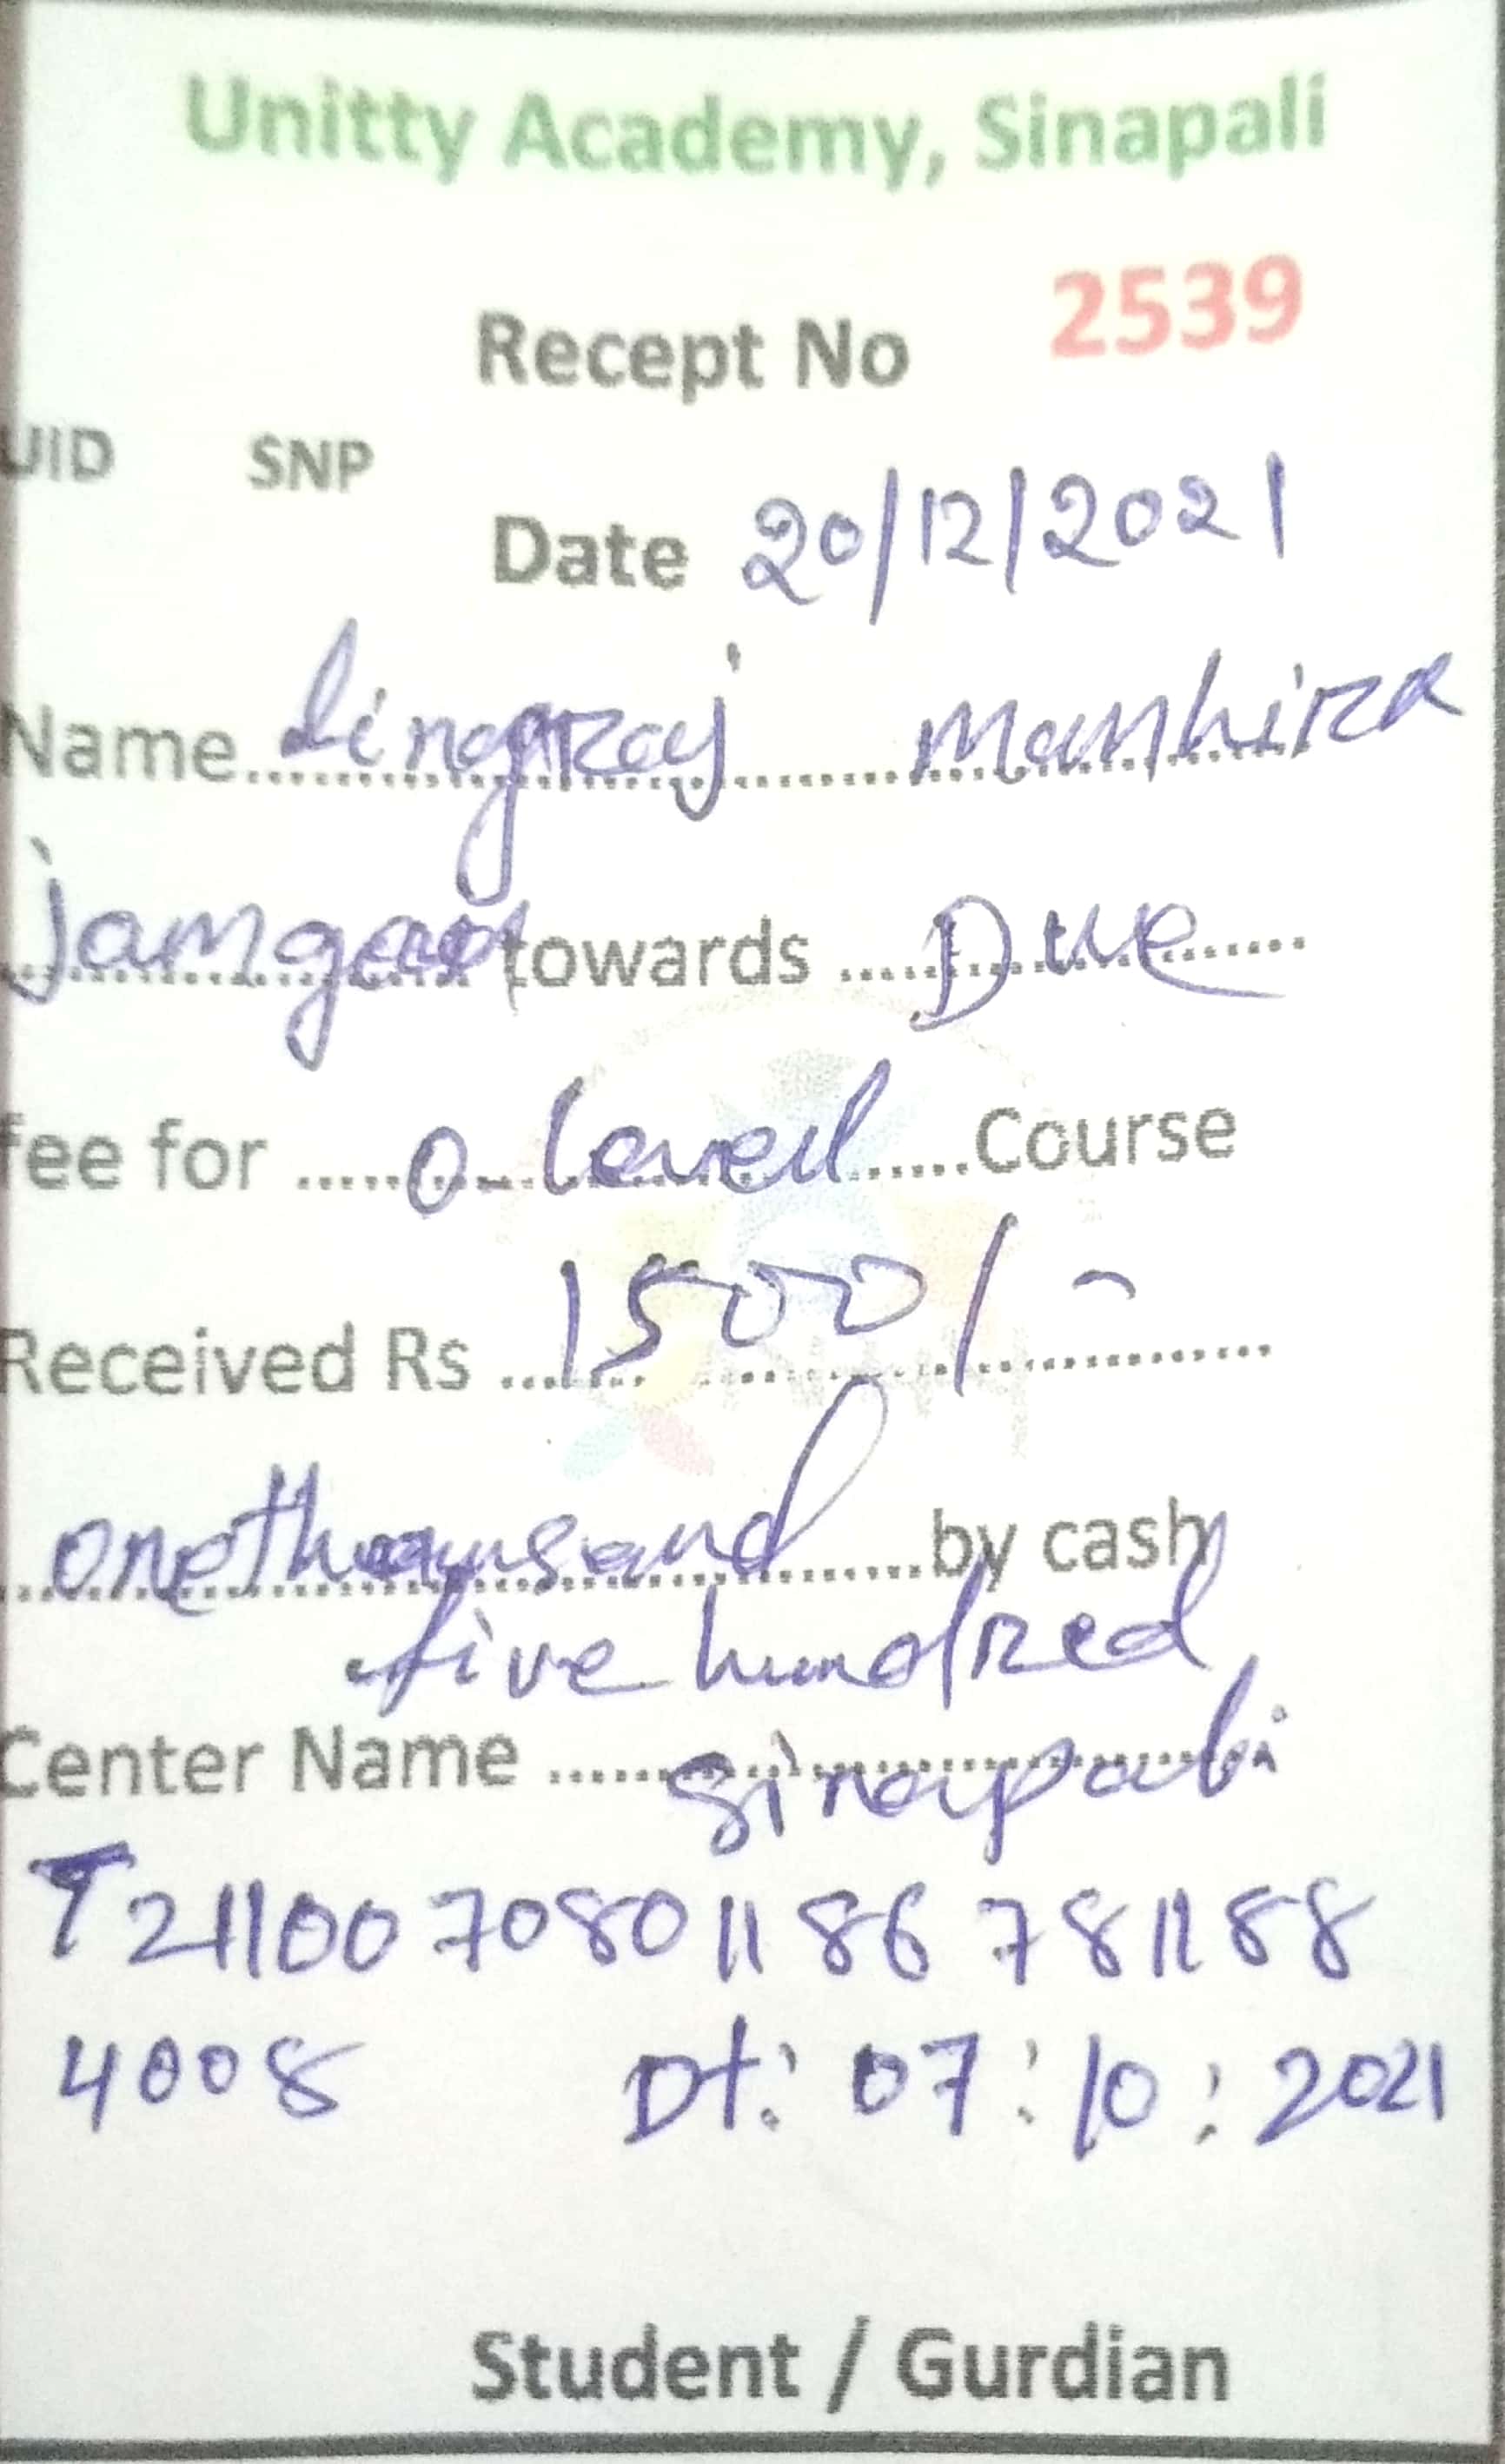 Unitty Academy, Sinapali
Recept No 2539
UID SNP
Date 20/12/2021
Name Lingraj Manhira
Jamgaon towards Due
fee for O-Level Course
Received Rs 1500/-
onethousand by cash
five hundred
Center Name Sinapali
T2110070801186781188
4008 Dt: 07:10:2021
Student / Gurdian